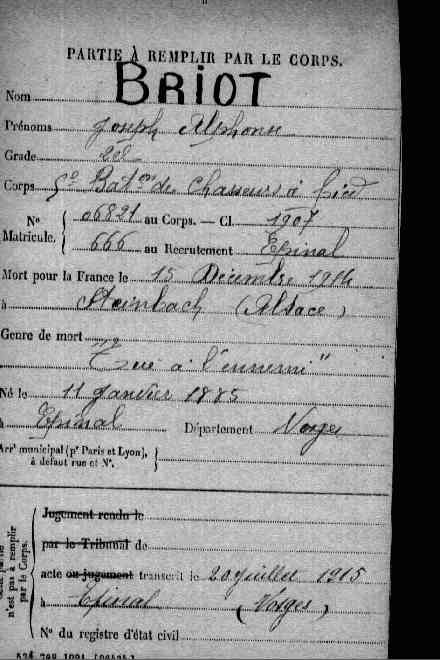 PARTIE À REMPLIR PAR LE CORPS.
Nom BRIOT
Prénoms Joseph Alphonse
Grade 2è
Corps 5e Baton de Chasseurs à Pied
N° 06821 au Corps. — Cl. 1907
Matricule. 666 au Recrutement Epinal
Mort pour la France le 15 Décembre 1914
à Steinbach (Alsace)
Genre de mort
Tué à l'ennemi"
Né le 11 Janvier 1885
à Epinal Département Vosges
Arrt municipal (pr Paris et Lyon),
à défaut rue et N°.
Jugement rendu le
par le Tribunal de
acte ou jugement transcrit le 20 juillet 1915
à Epinal (Vosges)
N° du registre d'état civil
n'est pas à remplir
par le Corps.